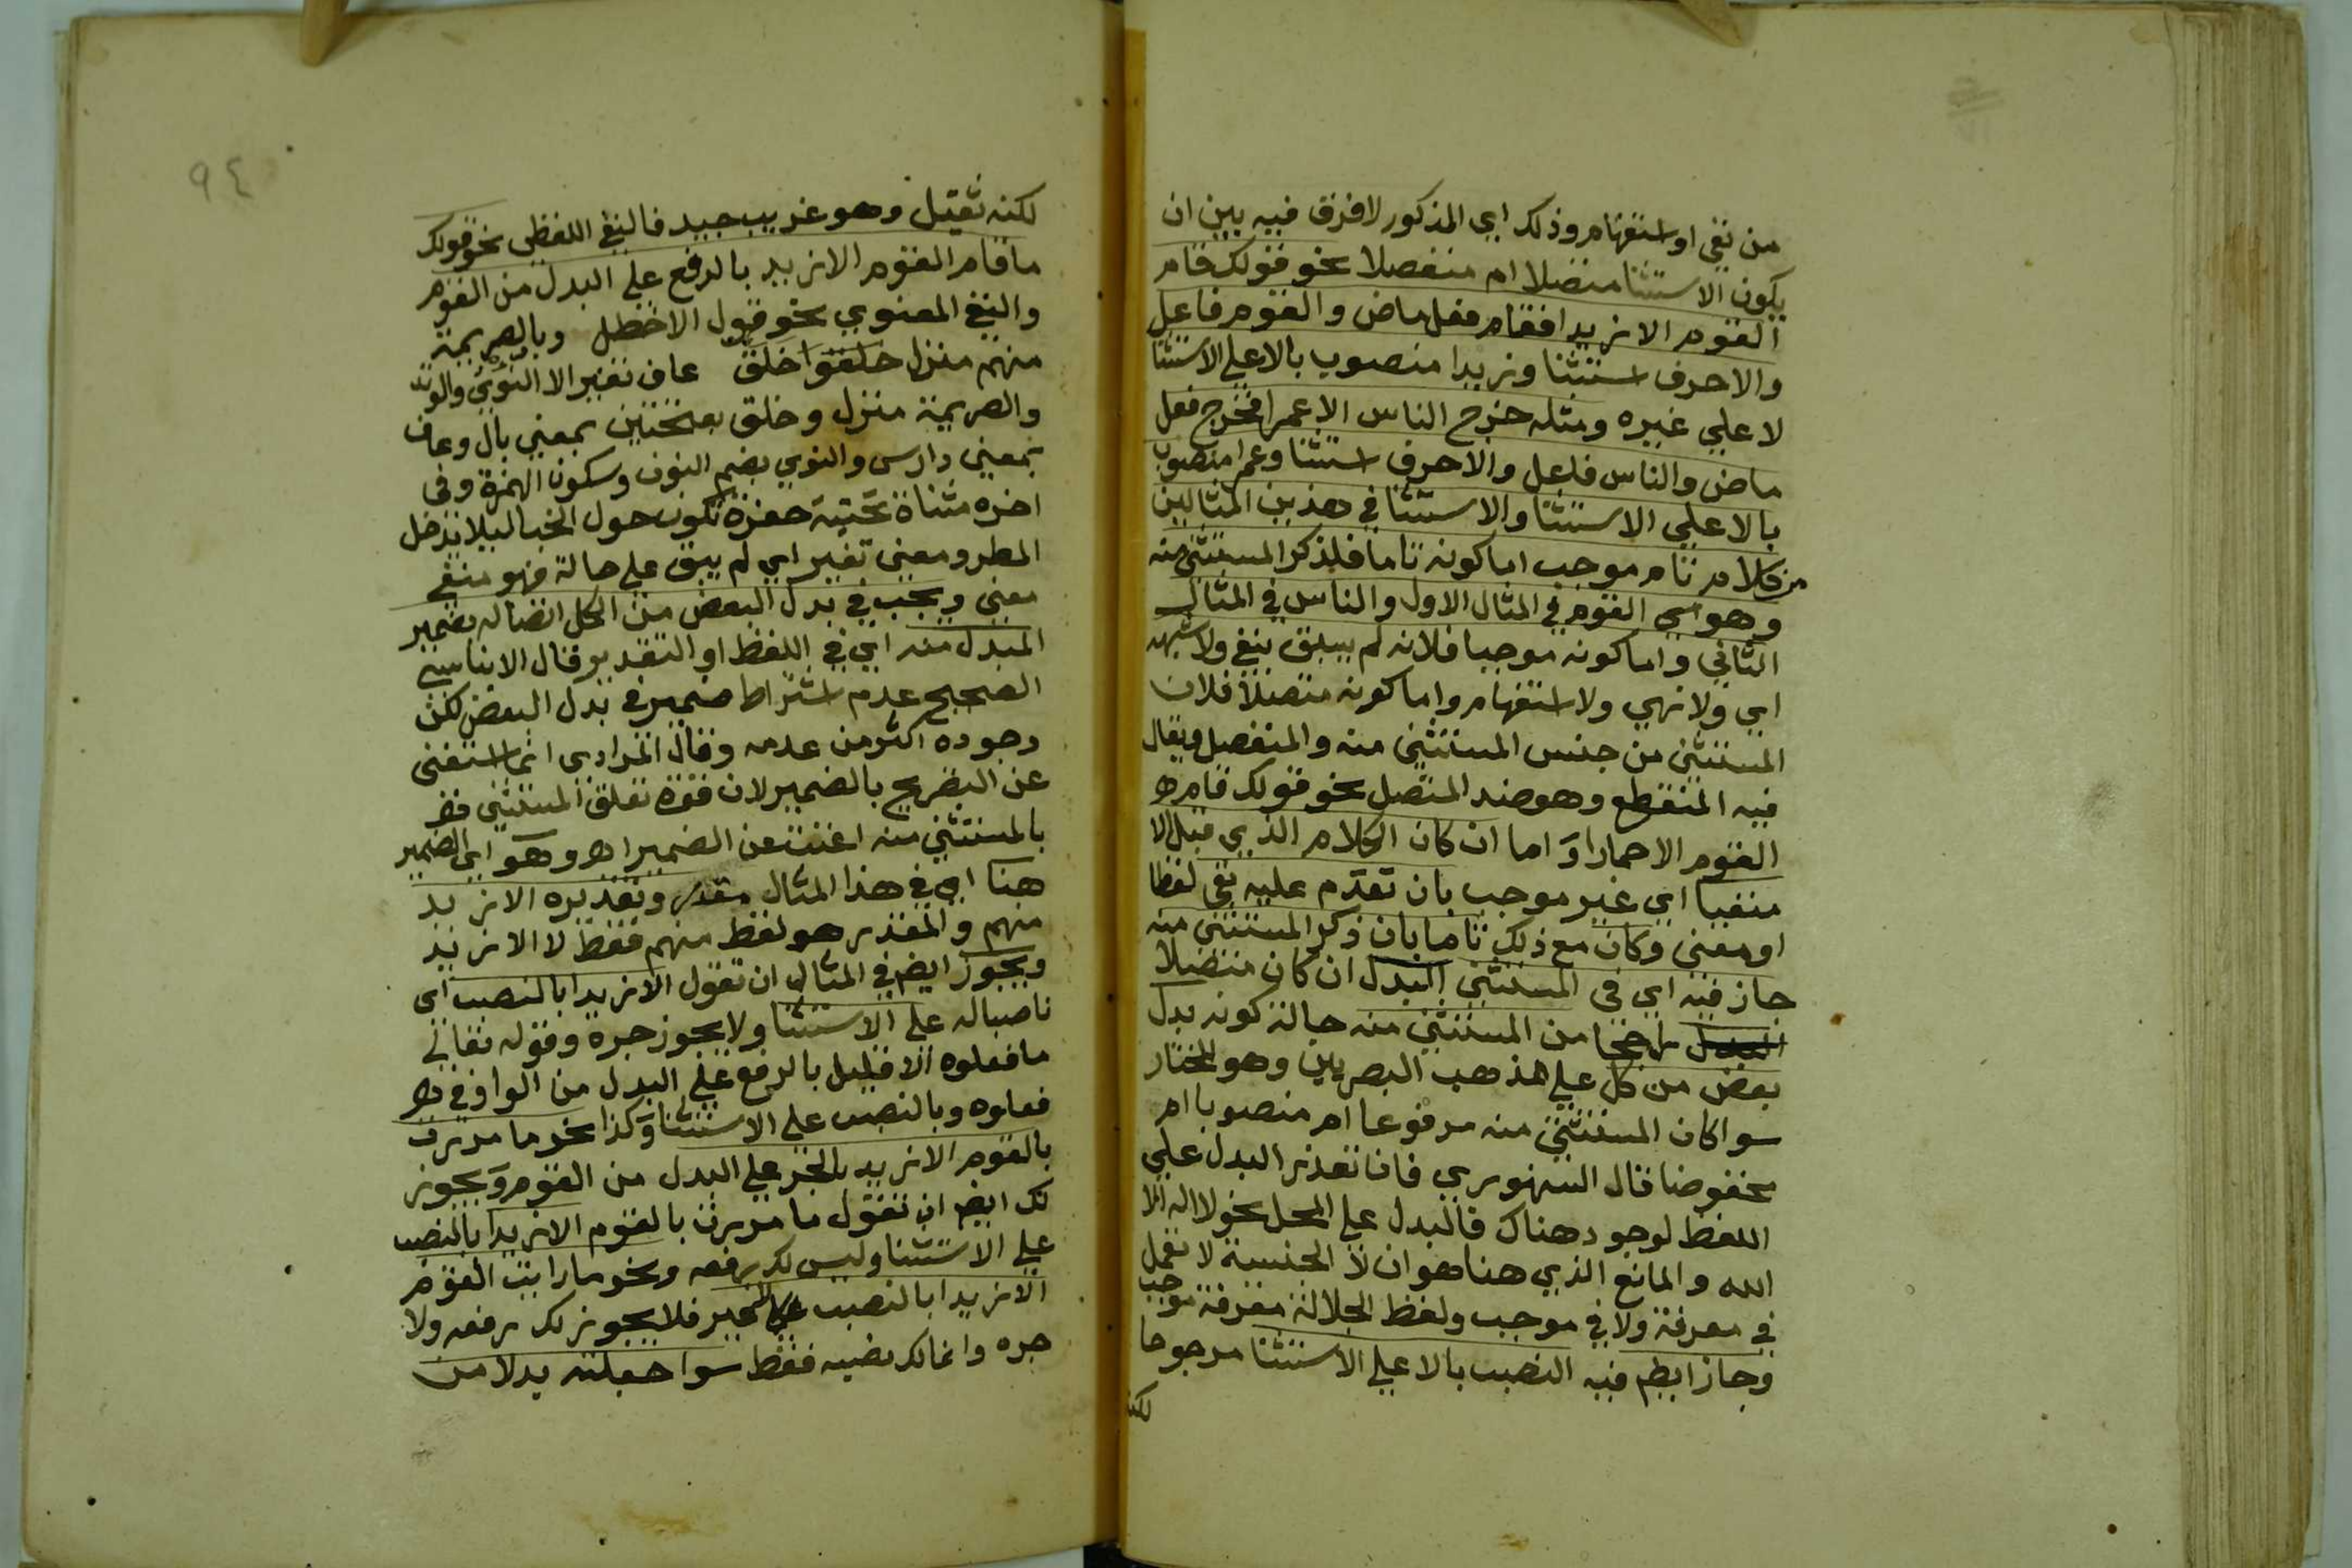 من نفي او استفهام وذلك اي المذكور لا فرق فيه بين ان
يكون الاستثنا متصلا ام منفصلا نحو قولك قام
القوم الا زيدا فقام فعل ماض والقوم فاعل
والا حرف استثنا وزيدا منصوب بالا علي الاستثنا
لا علي غيره ومثله خرج الناس الا عمرا فخرج فعل
ماض والناس فاعل والا حرف استثنا وعمرا منصوب
بالا علي الاستثنا والاستثنا في هذين المثالين
من كلام تام موجب اما كونه تاما فلذكر المستثنى منه
وهو اي القوم في المثال الاول والناس في المثال
الثاني واما كونه موجبا فلانه لم يسبق بنفي ولا شبهه
اي ولا نهي ولا استفهام واما كونه متصلا فلان
المستثنى من جنس المستثنى منه والمنفصل ويقال
فيه المنقطع وهو ضد المتصل نحو قولك قام
القوم الا حمارا و اما ان كان الكلام الذي قبل الا
منفيا اي غير موجب بان تقدم عليه نفي لفظا
او معنى وكان مع ذلك تاما بان ذكر المستثنى منه
جاز فيه اي في المستثنى البدل ان كان متصلا
راجحا من المستثنى منه حالة كونه بدل
بعض من كل علي مذهب البصريين وهو المختار
سوا كان المستثنى منه مرفوعا ام منصوبا ام
مخفوضا قال السنهوري فان تعذر البدل علي
اللفظ لوجود هناك فالبدل علي المحل نحو لا اله الا
الله والمانع الذي هنا هو ان لا الجنسية لا تعمل
في معرفة ولا في موجب ولفظ الجلالة معرفة موجب
وجاز ايضا فيه النصب بالا علي الاستثنا مرجوحا
لكنه
٩٤
لكنه ثقيل وهو غريب جيد فالنفي اللفظي نحو قولك
ما قام القوم الا زيد بالرفع علي البدل من القوم
والنفي المعنوي نحو قول الاخطل وبالصريمة
منهم منزل خلق عاف تغير الا النؤي والوتد
والصريمة منزل وخلق بفتحتين بمعنى بال وعاف
بمعنى دارس والنوي بضم النون وسكون الهمزة وفي
اخره مثناة تحتية حفرة تكون حول الخبا ليلا يدخل
المطر ومعنى تغير اي لم يبق علي حالة فهو منفي
معنى ويجب في بدل البعض من الكل اتصاله بضمير
المبدل منه اي في اللفظ او التقدير قال الابناسي
الصحيح عدم اشتراط ضمير في بدل البعض لكن
وجوده اكثر من عدمه وقال المرادي انما استغنى
عن التصريح بالضمير لان قوة تعلق المستثنى
بالمستثنى منه اغنت عن الضمير اهـ وهو اي الضمير
هنا اي في هذا المثال مقدر وتقديره الا زيد
منهم والمقدر هو لفظ منهم فقط لا الا زيد
ويجوز ايضا في المثال ان تقول الا زيدا بالنصب اي
ناصبا له علي الاستثنا ولا يجوز جره وقوله تعالي
ما فعلوه الا قليل بالرفع علي البدل من الواو في
فعلوه وبالنصب علي الاستثنا وكذا نحو ما مررت
بالقوم الا زيد بالجر علي البدل من القوم ويجوز
لك ايضا ان تقول ما مررت بالقوم الا زيدا بالنصب
علي الاستثنا وليس لك رفعه ونحو ما رايت القوم
الا زيدا بالنصب فلا يجوز لك رفعه ولا
جره وانما لك نصبه فقط سوا جعلته بدلا من